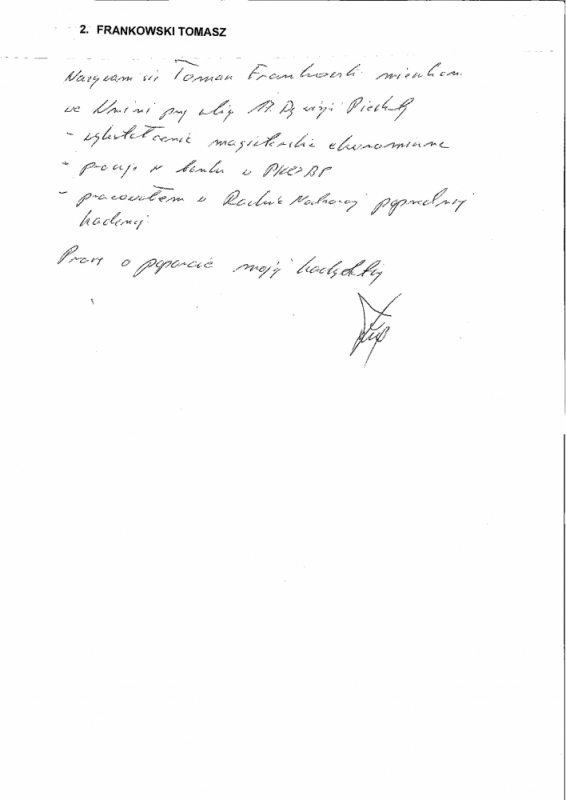 2. FRANKOWSKI TOMASZ
Nazywam się Tomasz Frankowski mieszkam
we Wrzini przy ulicy 17. Dywizji Piechoty
- wykształcenie magisterskie ekonomiczne
- pracuję w banku w PKO BP
- pracowałem w Radzie Nadzorczej poprzedniej
kadencji
Proszę o poparcie mojej kandydatury